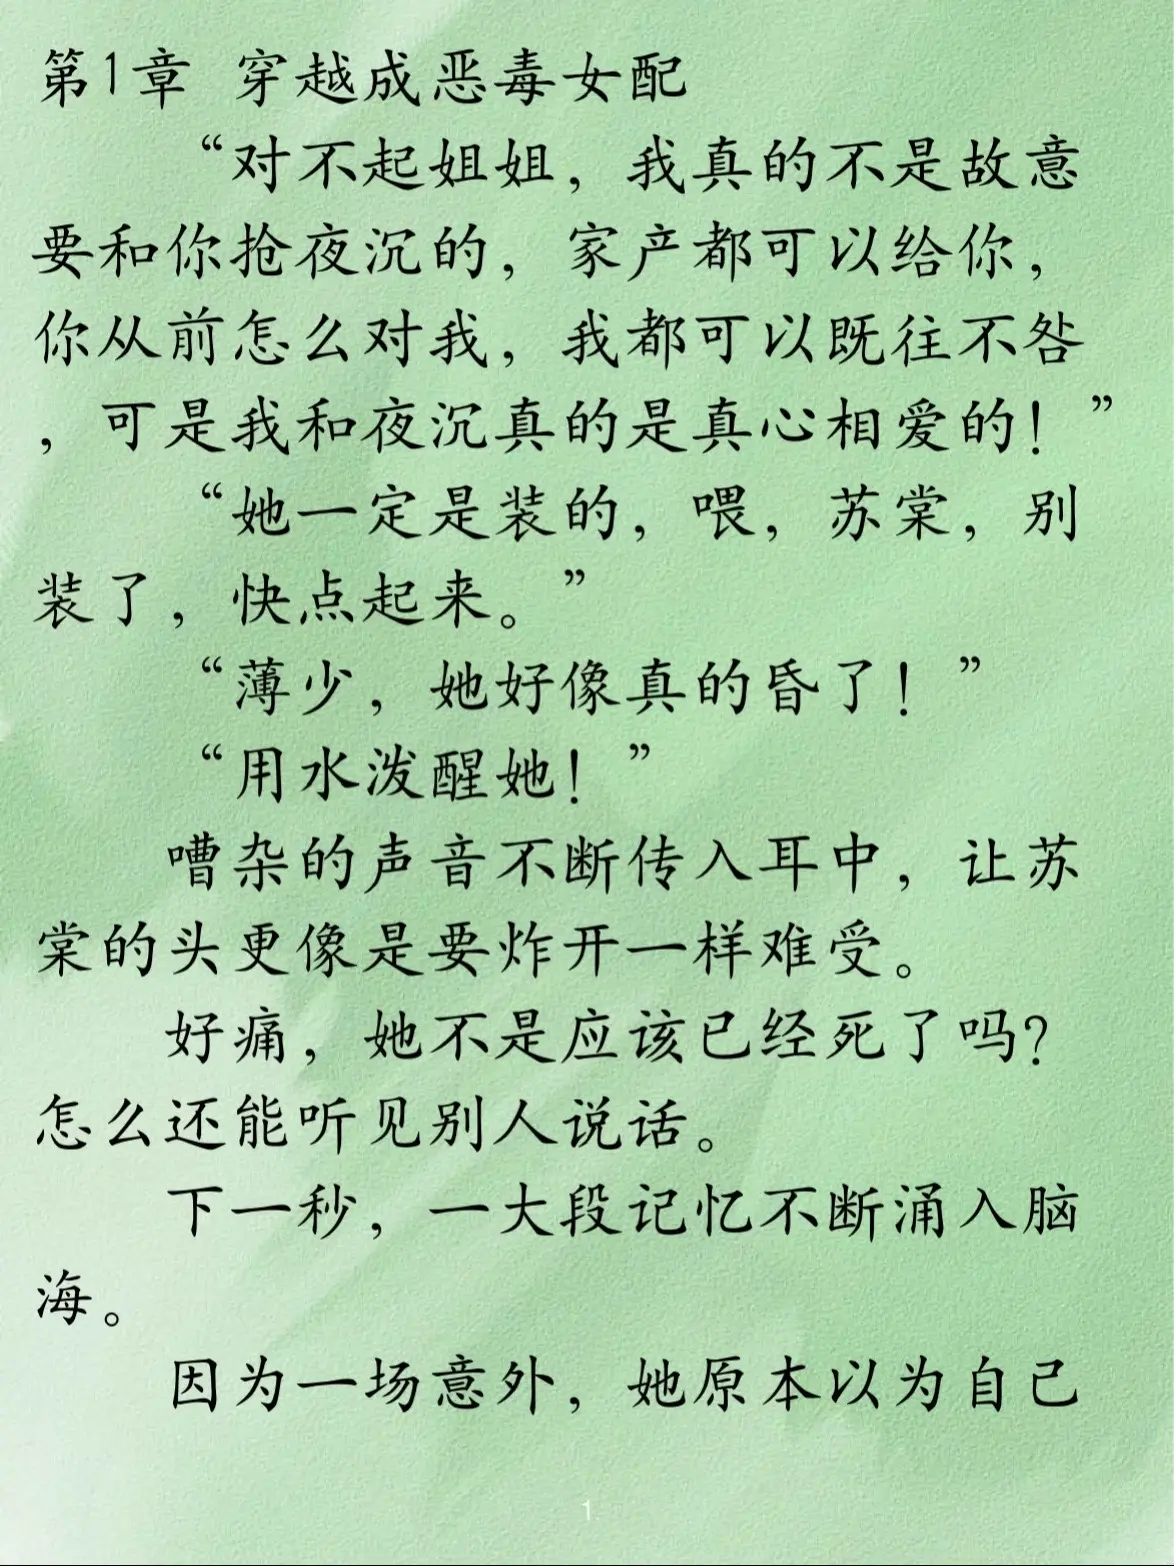 第1章 穿越成恶毒女配
“对不起姐姐，我真的不是故意
要和你抢夜沉的，家产都可以给你，
你从前怎么对我，我都可以既往不咎
，可是我和夜沉真的是真心相爱的！”
“她一定是装的，喂，苏棠，别
装了，快点起来。”
“薄少，她好像真的昏了！”
“用水泼醒她！”
嘈杂的声音不断传入耳中，让苏
棠的头更像是要炸开一样难受。
好痛，她不是应该已经死了吗？
怎么还能听见别人说话。
下一秒，一大段记忆不断涌入脑
海。
因为一场意外，她原本以为自己
1